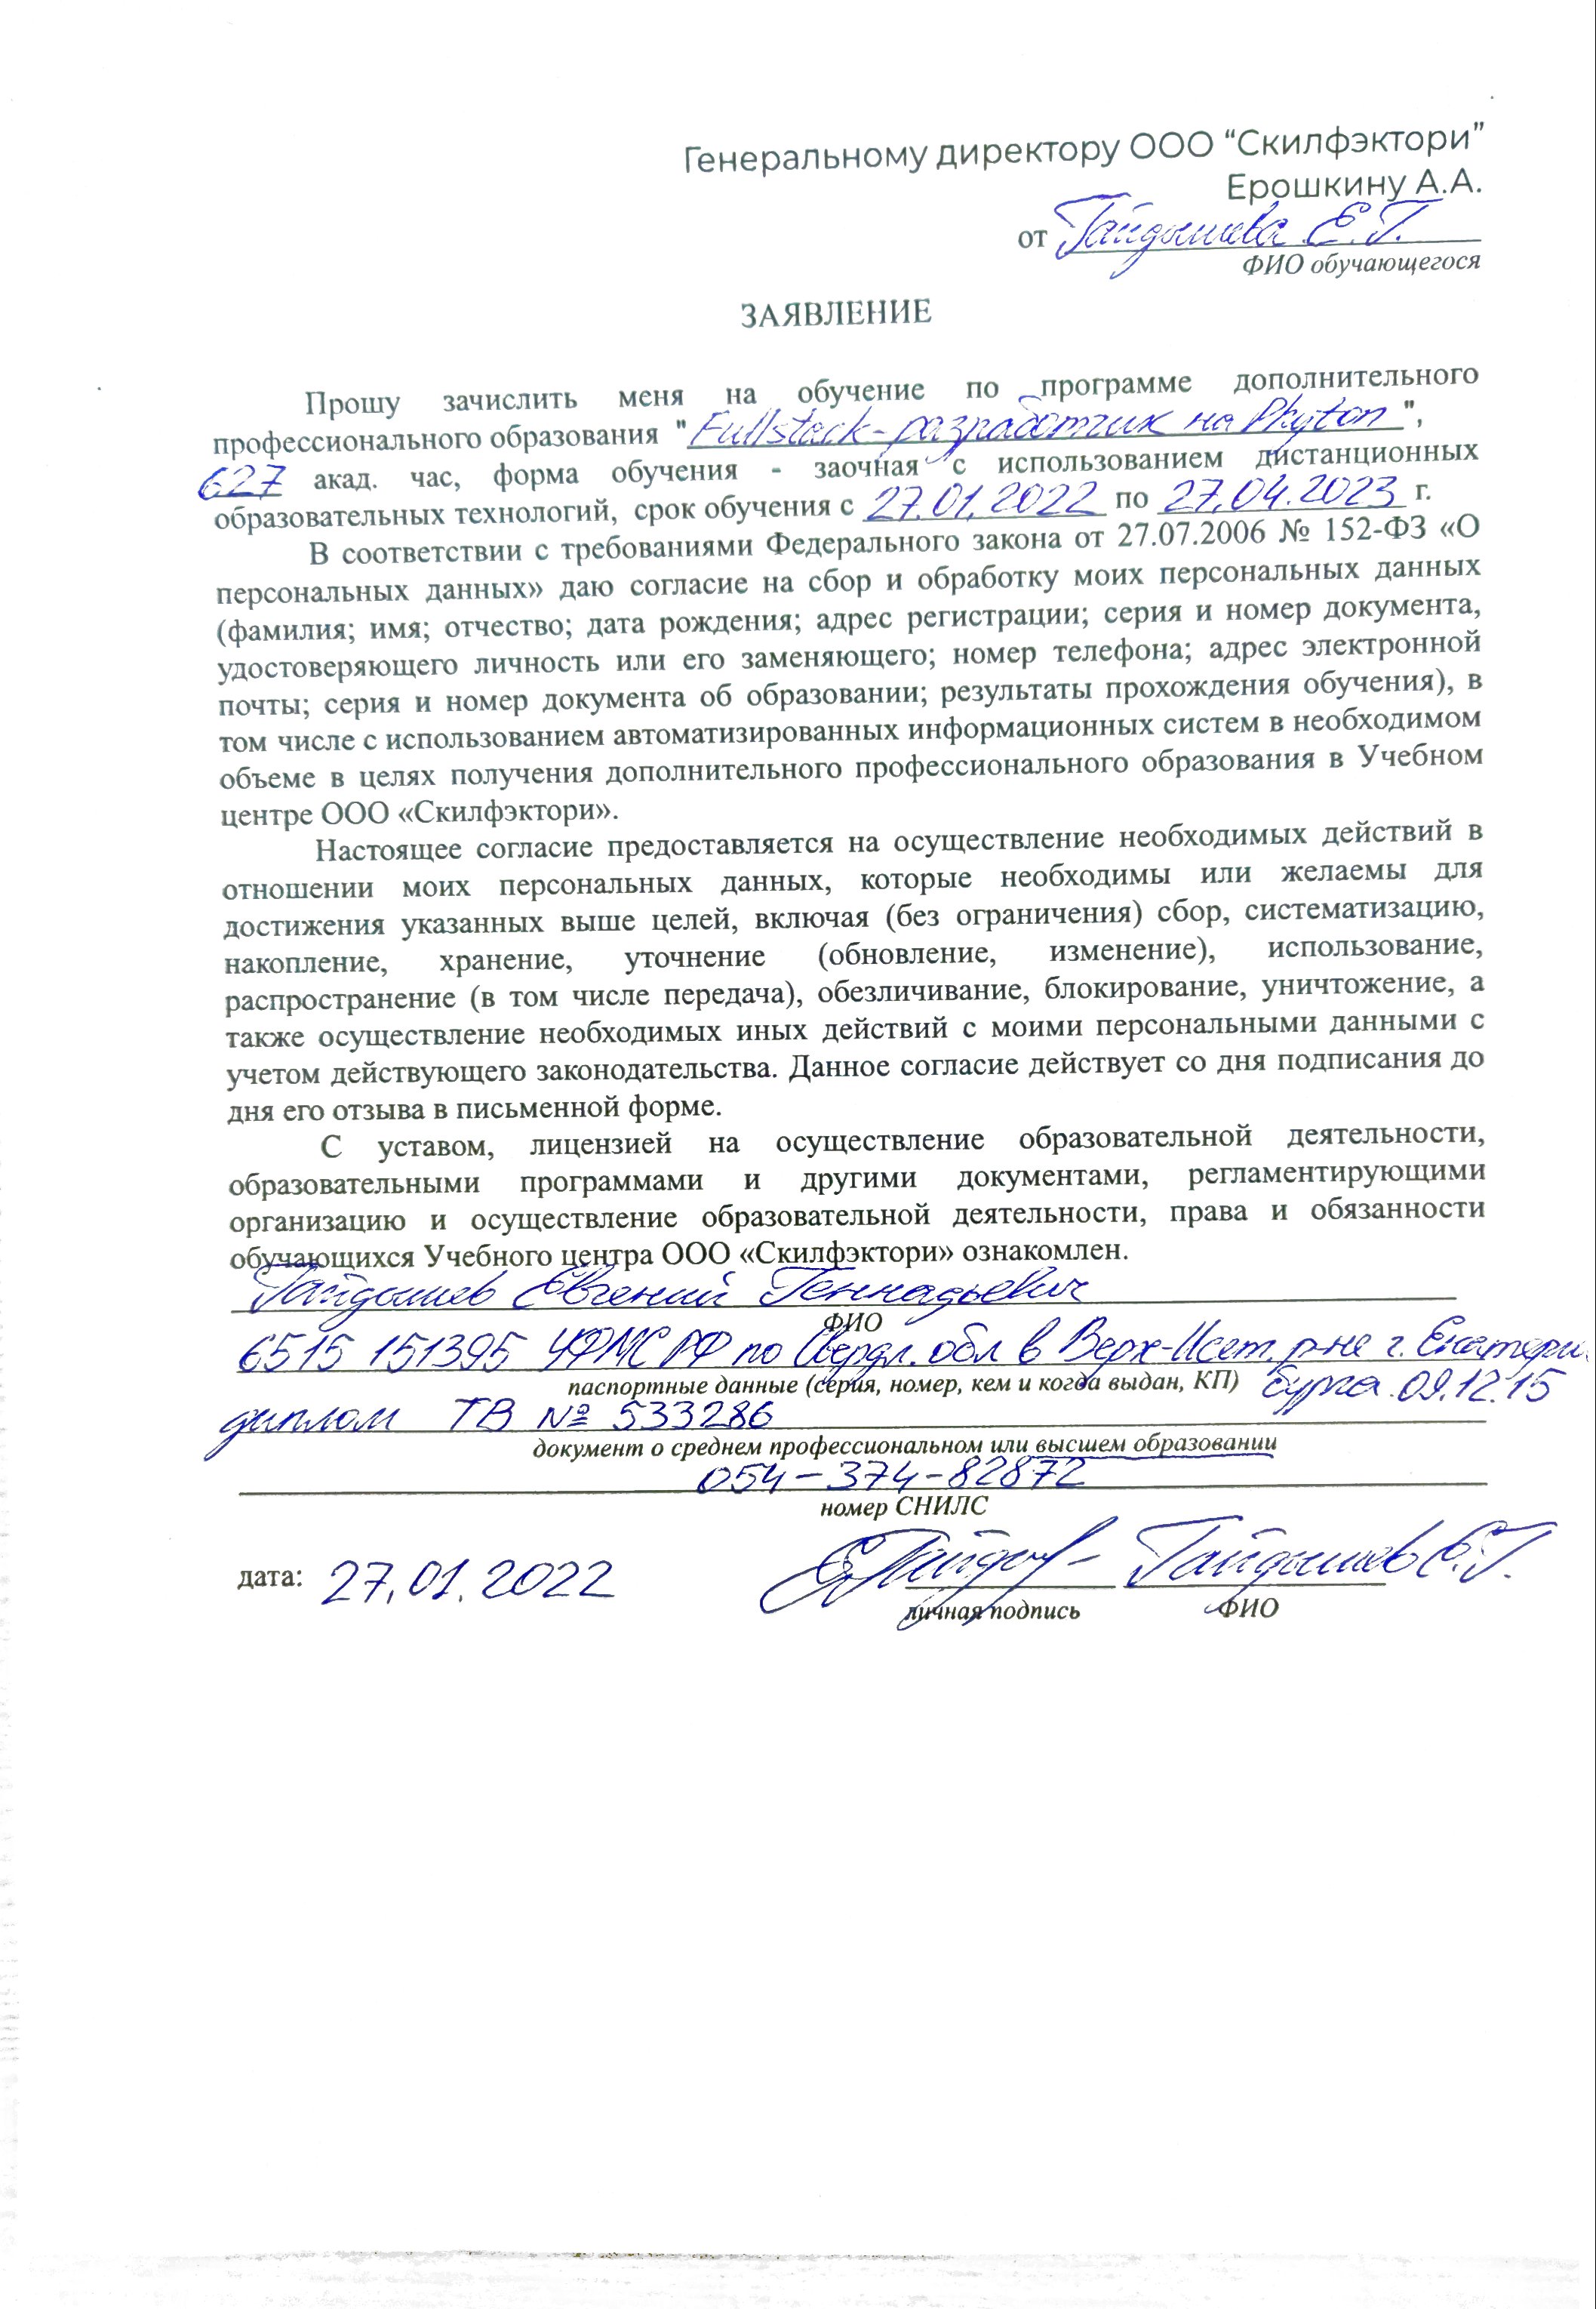 Генеральному директору ООО “Скилфэктори”
Ерошкину А.А.
от Гайдышева Е.Г.
ФИО обучающегося
ЗАЯВЛЕНИЕ
Прошу зачислить меня на обучение по программе дополнительного
профессионального образования "Fullstack-разработчик на Phyton",
627 акад. час, форма обучения - заочная с использованием дистанционных
образовательных технологий, срок обучения с 27.01.2022 по 27.04.2023 г.
В соответствии с требованиями Федерального закона от 27.07.2006 № 152-ФЗ «О
персональных данных» даю согласие на сбор и обработку моих персональных данных
(фамилия; имя; отчество; дата рождения; адрес регистрации; серия и номер документа,
удостоверяющего личность или его заменяющего; номер телефона; адрес электронной
почты; серия и номер документа об образовании; результаты прохождения обучения), в
том числе с использованием автоматизированных информационных систем в необходимом
объеме в целях получения дополнительного профессионального образования в Учебном
центре ООО «Скилфэктори».
Настоящее согласие предоставляется на осуществление необходимых действий в
отношении моих персональных данных, которые необходимы или желаемы для
достижения указанных выше целей, включая (без ограничения) сбор, систематизацию,
накопление, хранение, уточнение (обновление, изменение), использование,
распространение (в том числе передача), обезличивание, блокирование, уничтожение, а
также осуществление необходимых иных действий с моими персональными данными с
учетом действующего законодательства. Данное согласие действует со дня подписания до
дня его отзыва в письменной форме.
С уставом, лицензией на осуществление образовательной деятельности,
образовательными программами и другими документами, регламентирующими
организацию и осуществление образовательной деятельности, права и обязанности
обучающихся Учебного центра ООО «Скилфэктори» ознакомлен.
Гайдышев Евгений Геннадьевич
ФИО
6515 151395 УФМС РФ по Свердл. обл в Верх-Исет. р-не г. Екатерин
паспортные данные (серия, номер, кем и когда выдан, КП) бурга 09.12.15
диплом ТВ № 533286
документ о среднем профессиональном или высшем образовании
054-374-82872
номер СНИЛС
дата: 27.01.2022 Гайдышев Е.Г.
личная подпись ФИО